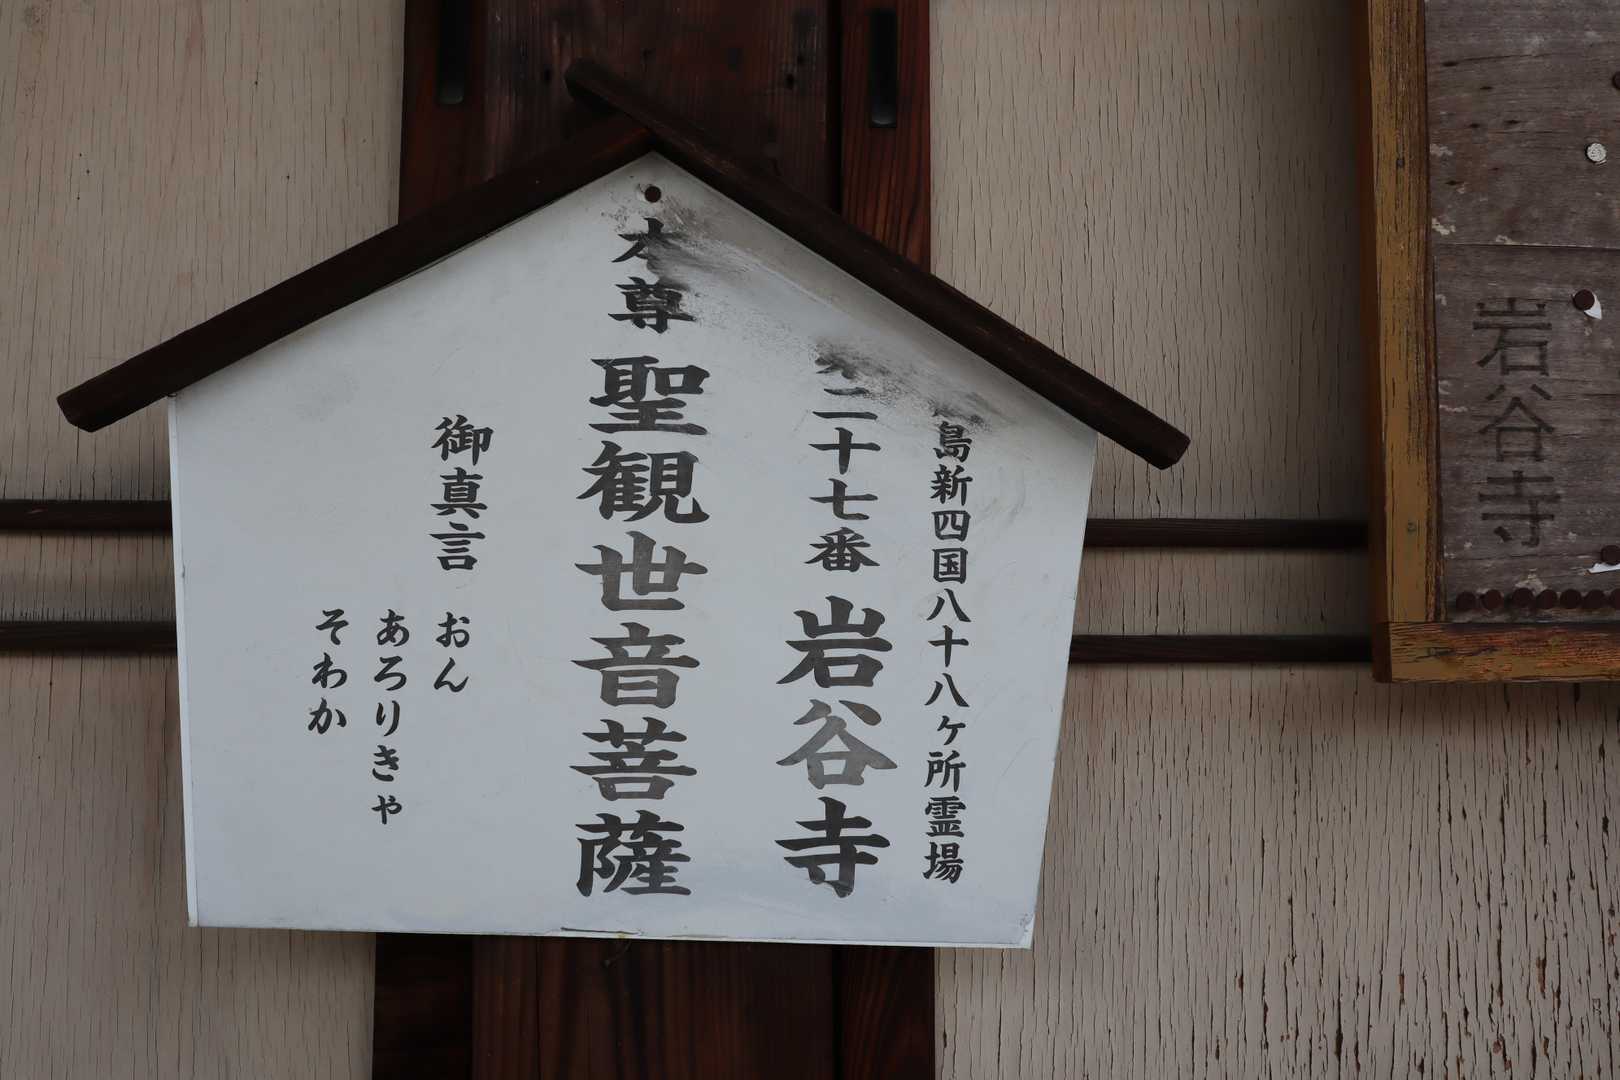 島新四国八十八ヶ所霊場
第二十七番 岩谷寺
本尊 聖観世音菩薩
御真言 おん
あろりきゃ
そわか
岩谷寺